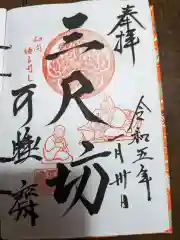 奉拝
令和五年
月卅日
三尺坊
可睡斎